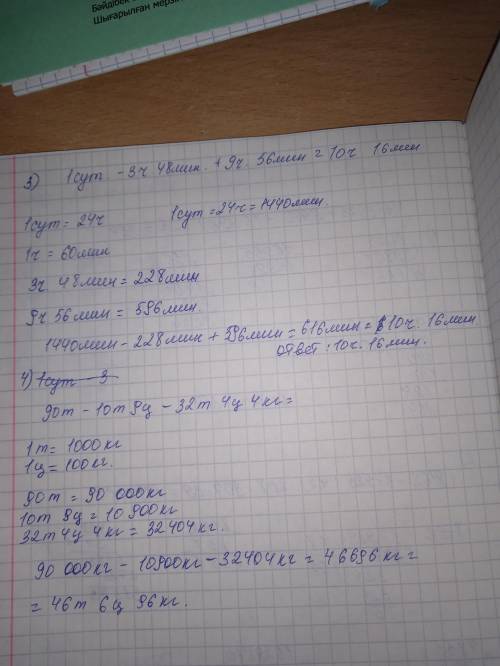 Байдібек
Шығарылған мерзім
3) 1сут - 3ч 48мин. + 9ч. 56мин = 10ч 16мин
1сут = 24ч 1сут = 24ч = 1440мин.
1ч = 60мин
3ч. 48мин = 228мин
9ч 56мин = 596мин.
1440мин - 228мин + 596мин = 616мин = 10ч. 16мин
ответ: 10ч. 16мин.
4) 1сут - 3
90т - 10т 9ц - 32т 4ц 4кг =
1т = 1000кг
1ц = 100кг.
90т = 90 000кг
10т 9ц = 10900кг
32т 4ц 4кг = 32404кг.
90 000кг - 10900кг - 32404кг = 46696кг =
= 46т 6ц 96кг.